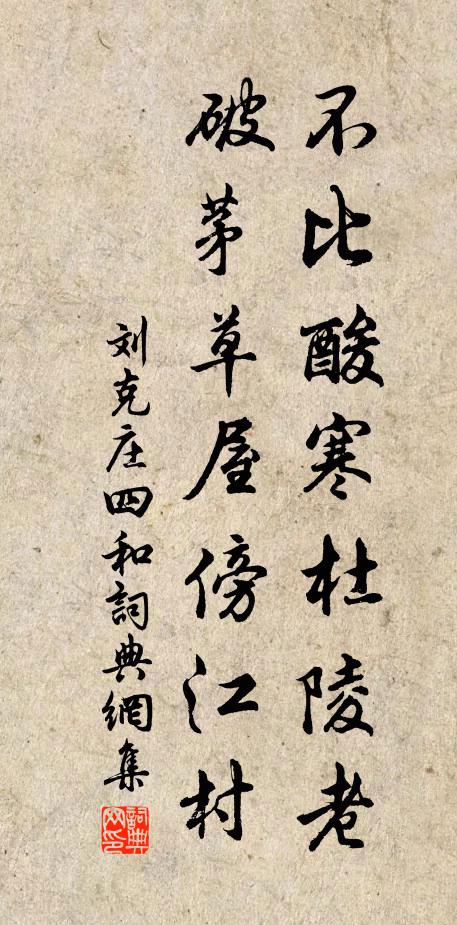 不比酸寒杜陵老
破茅草屋傍江村
刘克庄四和詞典網集
詞典網印